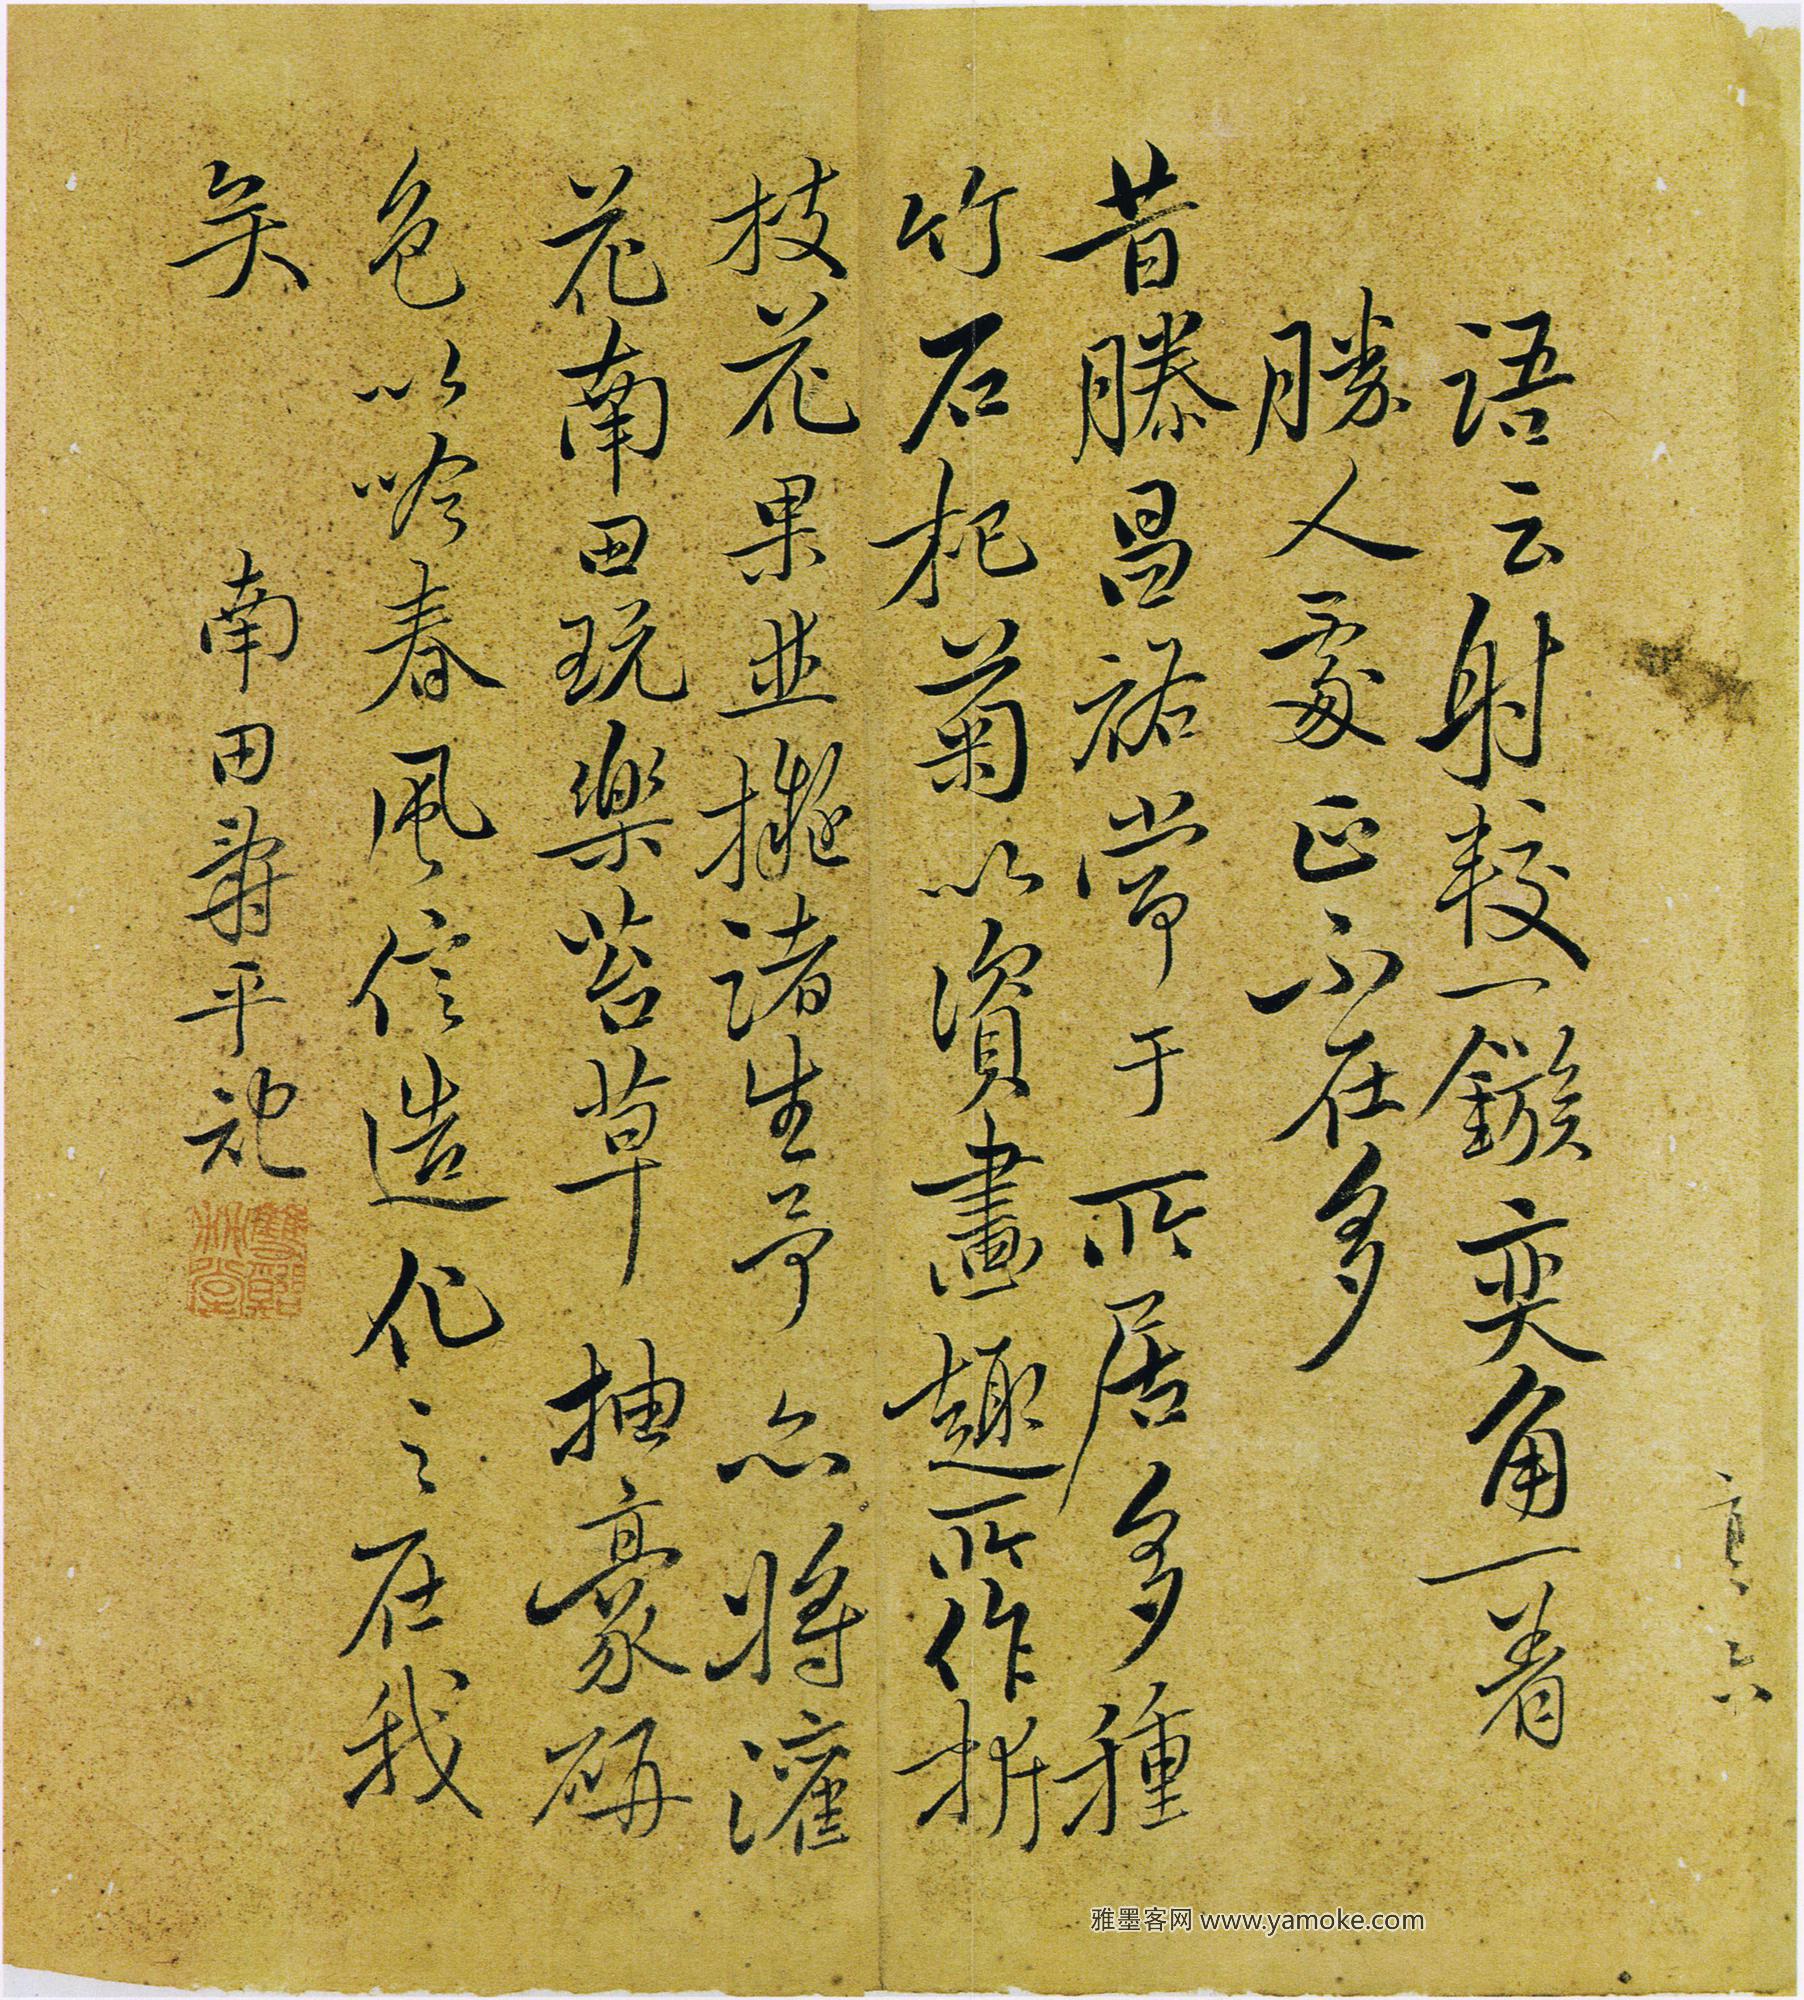 語云射較一鏃奕角一着
勝人處正不在多
昔滕昌祐常于所居多種
竹石杞菊以資畫趣所作折
枝花果並擬諸生予亦將灌
花南田玩樂苔草抽豪研
色以吟春風信造化之在我
矣
南田壽平記
雅墨客网 www.yamoke.com